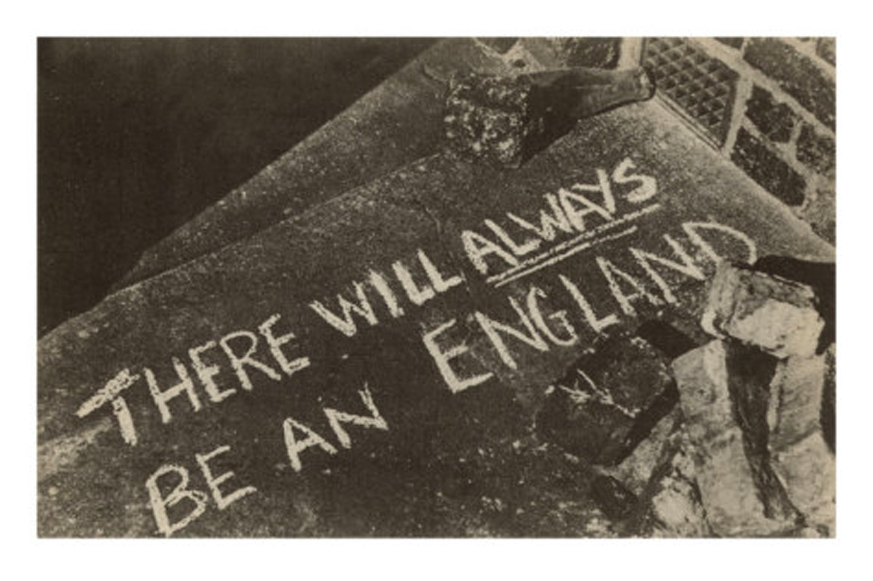 THERE WILL ALWAYS
BE AN ENGLAND